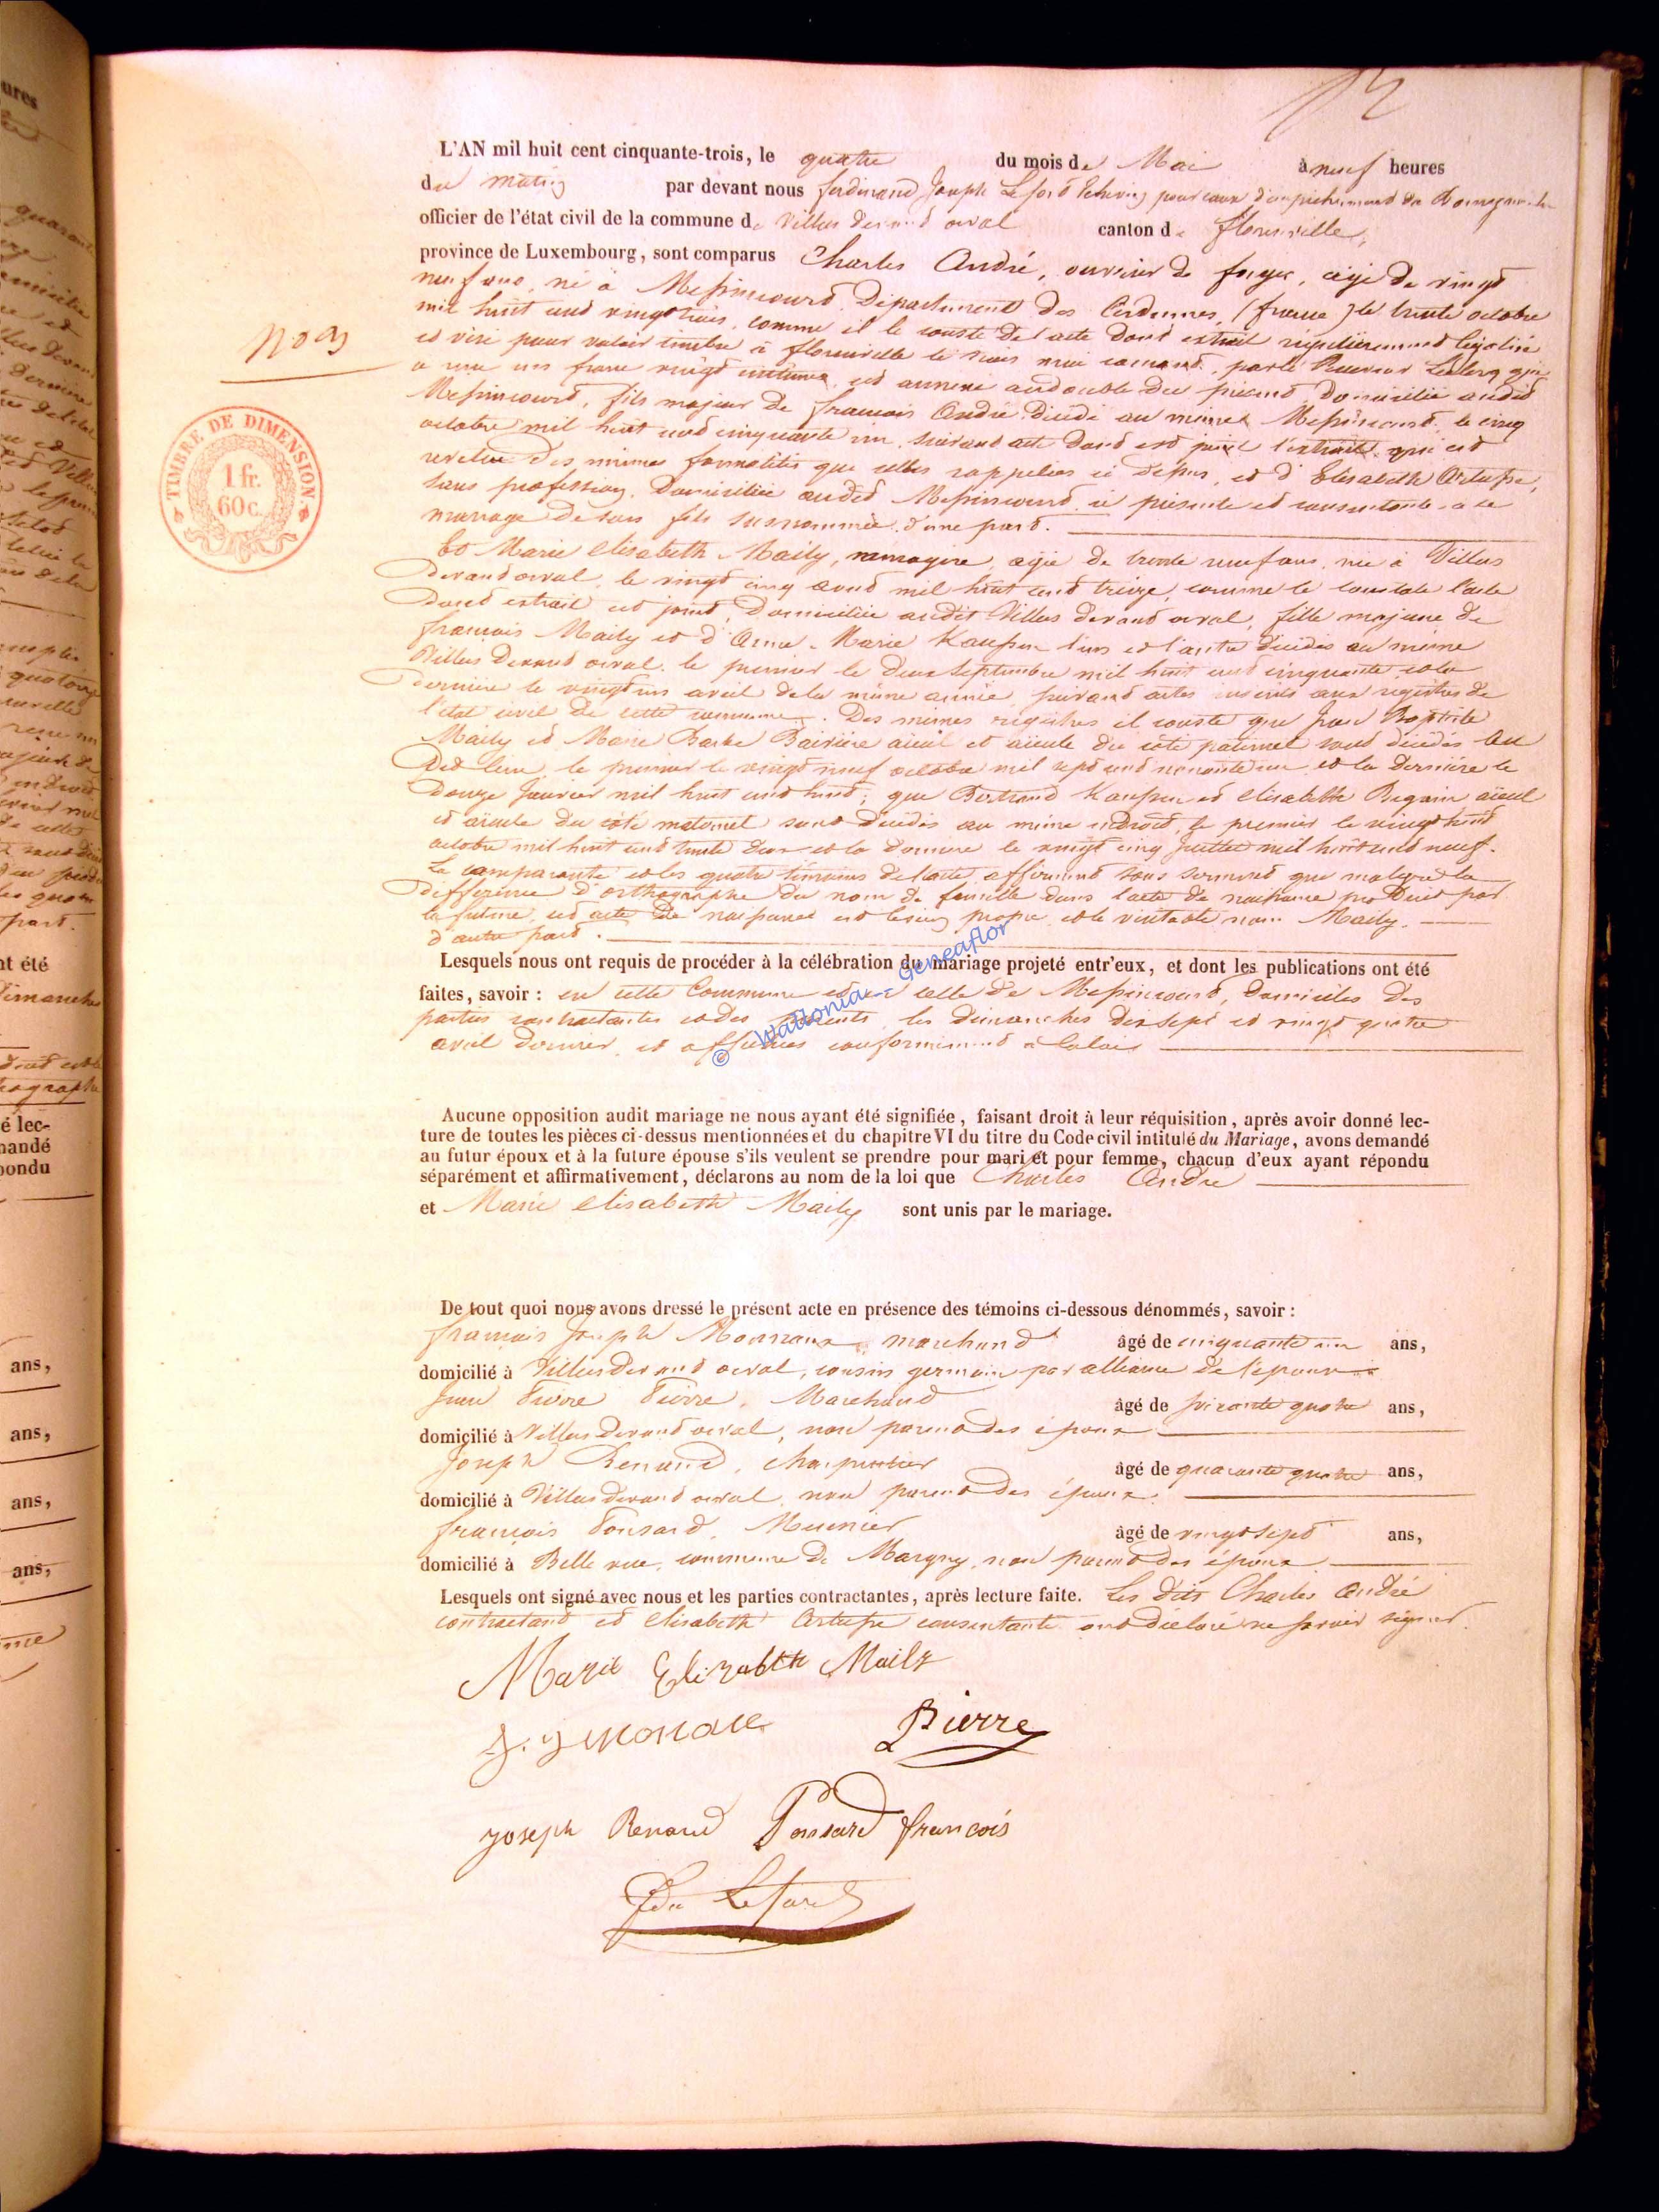 L'AN mil huit cent cinquante-trois, le quatre du mois de Mai à neuf heures
du matin par devant nous ferdinand Joseph Lefort Echevin pour cause d'empêchement du
officier de l'état civil de la commune de Villers devant orval canton de florenville,
province de Luxembourg, sont comparus Charles André, ouvrier de forges, âgé de vingt
neuf ans, né à Messincourt, Département des Ardennes, (france) le trente octobre
mil huit cent vingt trois, comme il le conste de l'acte dont extrait régulièrement légalisé
et visé pour valoir timbre à florenville le mai courant, par le Receveur Leclerq qui
a reçu un franc vingt centimes, est annexé au double du présent, Domicilié audit
Messincourt, fils majeur de francois André décédé au même Messincourt, le cinq
octobre mil huit cent cinquante un, suivant acte dont est joint l'extrait qui est
revêtu des mêmes formalités que celles rappelées ci dessus, et d'Elisabeth
sans profession, Domiciliée audit Messincourt, ici présente et consentante a ce
mariage de son fils susnommé, d'une part.
Et Marie elisabeth Maily, ménagère, agée de trente neuf ans, née à Villers
devant orval, le vingt cinq aout mil huit cent treize, comme le constate l'acte
dont extrait est joint, Domiciliée audit Villers devant orval, fille majeure de
francois Maily et d'Anne Marie l'un et l'autre décédés au même
Villers devant orval, le premier le deux septembre mil huit cent cinquante et la
dernière le vingt un avril de la même année, suivant actes inscrits aux registres de
l'état civil de cette commune. Des mêmes registres il conste que Jean Baptiste
Maily et Marie Barbe aïeul et aïeule du coté paternel sont décédés au
dit lieu le premier le vingt neuf octobre mil sept cent nonante un et la dernière le
douze Janvier mil huit cent huit; que Bertrand et elisabeth aïeul
et aïeule du côté maternel sont décédés au même endroit, le premier le vingt huit
octobre mil huit cent trente deux et la dernière le vingt cinq Juillet mil huit cent neuf.
La comparante et les quatre témoins de l'acte affirment sous serment que malgré la
différence d'orthographe du nom de famille dans l'acte de naissance produit par
la future, cet acte de naissance est le sien propre et le véritable nom Maily.
d'autre part.
Lesquels nous ont requis de procéder à la célébration du mariage projeté entr'eux, et dont les publications ont été
faites, savoir : en cette Commune et en celle de Messincourt, Domiciles des
parties contractantes et des parents, les dimanches dix sept et vingt quatre
avril dernier, et affichées conformément à la loi
© Wallonia - Geneaflor
Aucune opposition audit mariage ne nous ayant été signifiée, faisant droit à leur réquisition, après avoir donné lec-
ture de toutes les pièces ci-dessus mentionnées et du chapitre VI du titre du Code civil intitulé du Mariage, avons demandé
au futur époux et à la future épouse s'ils veulent se prendre pour mari et pour femme, chacun d'eux ayant répondu
séparément et affirmativement, déclarons au nom de la loi que Charles André
et Marie elisabeth Maily sont unis par le mariage.
De tout quoi nous avons dressé le présent acte en présence des témoins ci-dessous dénommés, savoir :
francois Joseph marchand âgé de cinquante un ans,
domicilié à Villers devant orval, cousin germain par alliance de l'épouse
Jean Pierre Pierre, Marchand âgé de soixante quatre ans,
domicilié à Villers devant orval, non parent des époux
Joseph Renaud, charpentier âgé de quarante quatre ans,
domicilié à Villers devant orval, non parent des époux.
françois Ponsard, Meunier âgé de vingt sept ans,
domicilié à Belle vue, commune de Margny, non parent des époux
Lesquels ont signé avec nous et les parties contractantes, après lecture faite. Les dits Charles André
contractant et elisabeth consentante ont déclaré ne savoir signer.
Marie Elizabeth Maily
Pierre
Joseph Renaud Ponsard françois
Lefort
TIMBRE DE DIMENSION.
1 fr.
60 c.